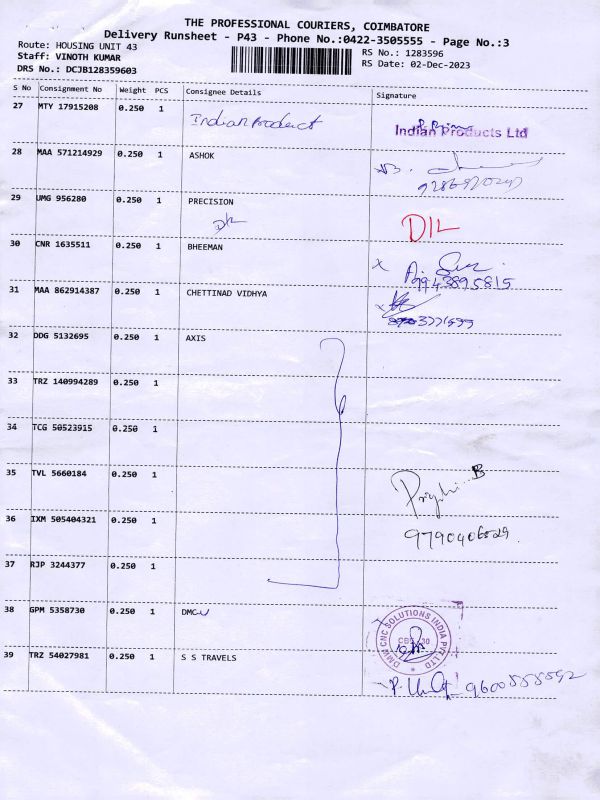 THE PROFESSIONAL COURIERS, COIMBATORE
Delivery Runsheet - P43 - Phone No.:0422-3505555 - Page No.:3
Route: HOUSING UNIT 43
RS No.: 1283596
Staff: VINOTH KUMAR
RS Date: 02-Dec-2023
DRS No.: DCJB128359603
S No Consignment No Weight PCS Consignee Details Signature
27 MTY 17915208 0.250 1 Indian Product
Indian Products Ltd
28 MAA 571214929 0.250 1 ASHOK
29 UMG 956280 0.250 1 PRECISION
D/L
DIL
30 CNR 1635511 0.250 1 BHEEMAN
9943895815
31 MAA 862914387 0.250 1 CHETTINAD VIDHYA
32 DDG 5132695 0.250 1 AXIS
33 TRZ 140994289 0.250 1
34 TCG 50523915 0.250 1
35 TVL 5660184 0.250 1
36 IXM 505404321 0.250 1
37 RJP 3244377 0.250 1
38 GPM 5358730 0.250 1 DMCW
DMW CNC SOLUTIONS INDIA PVT LTD
39 TRZ 54027981 0.250 1 S S TRAVELS